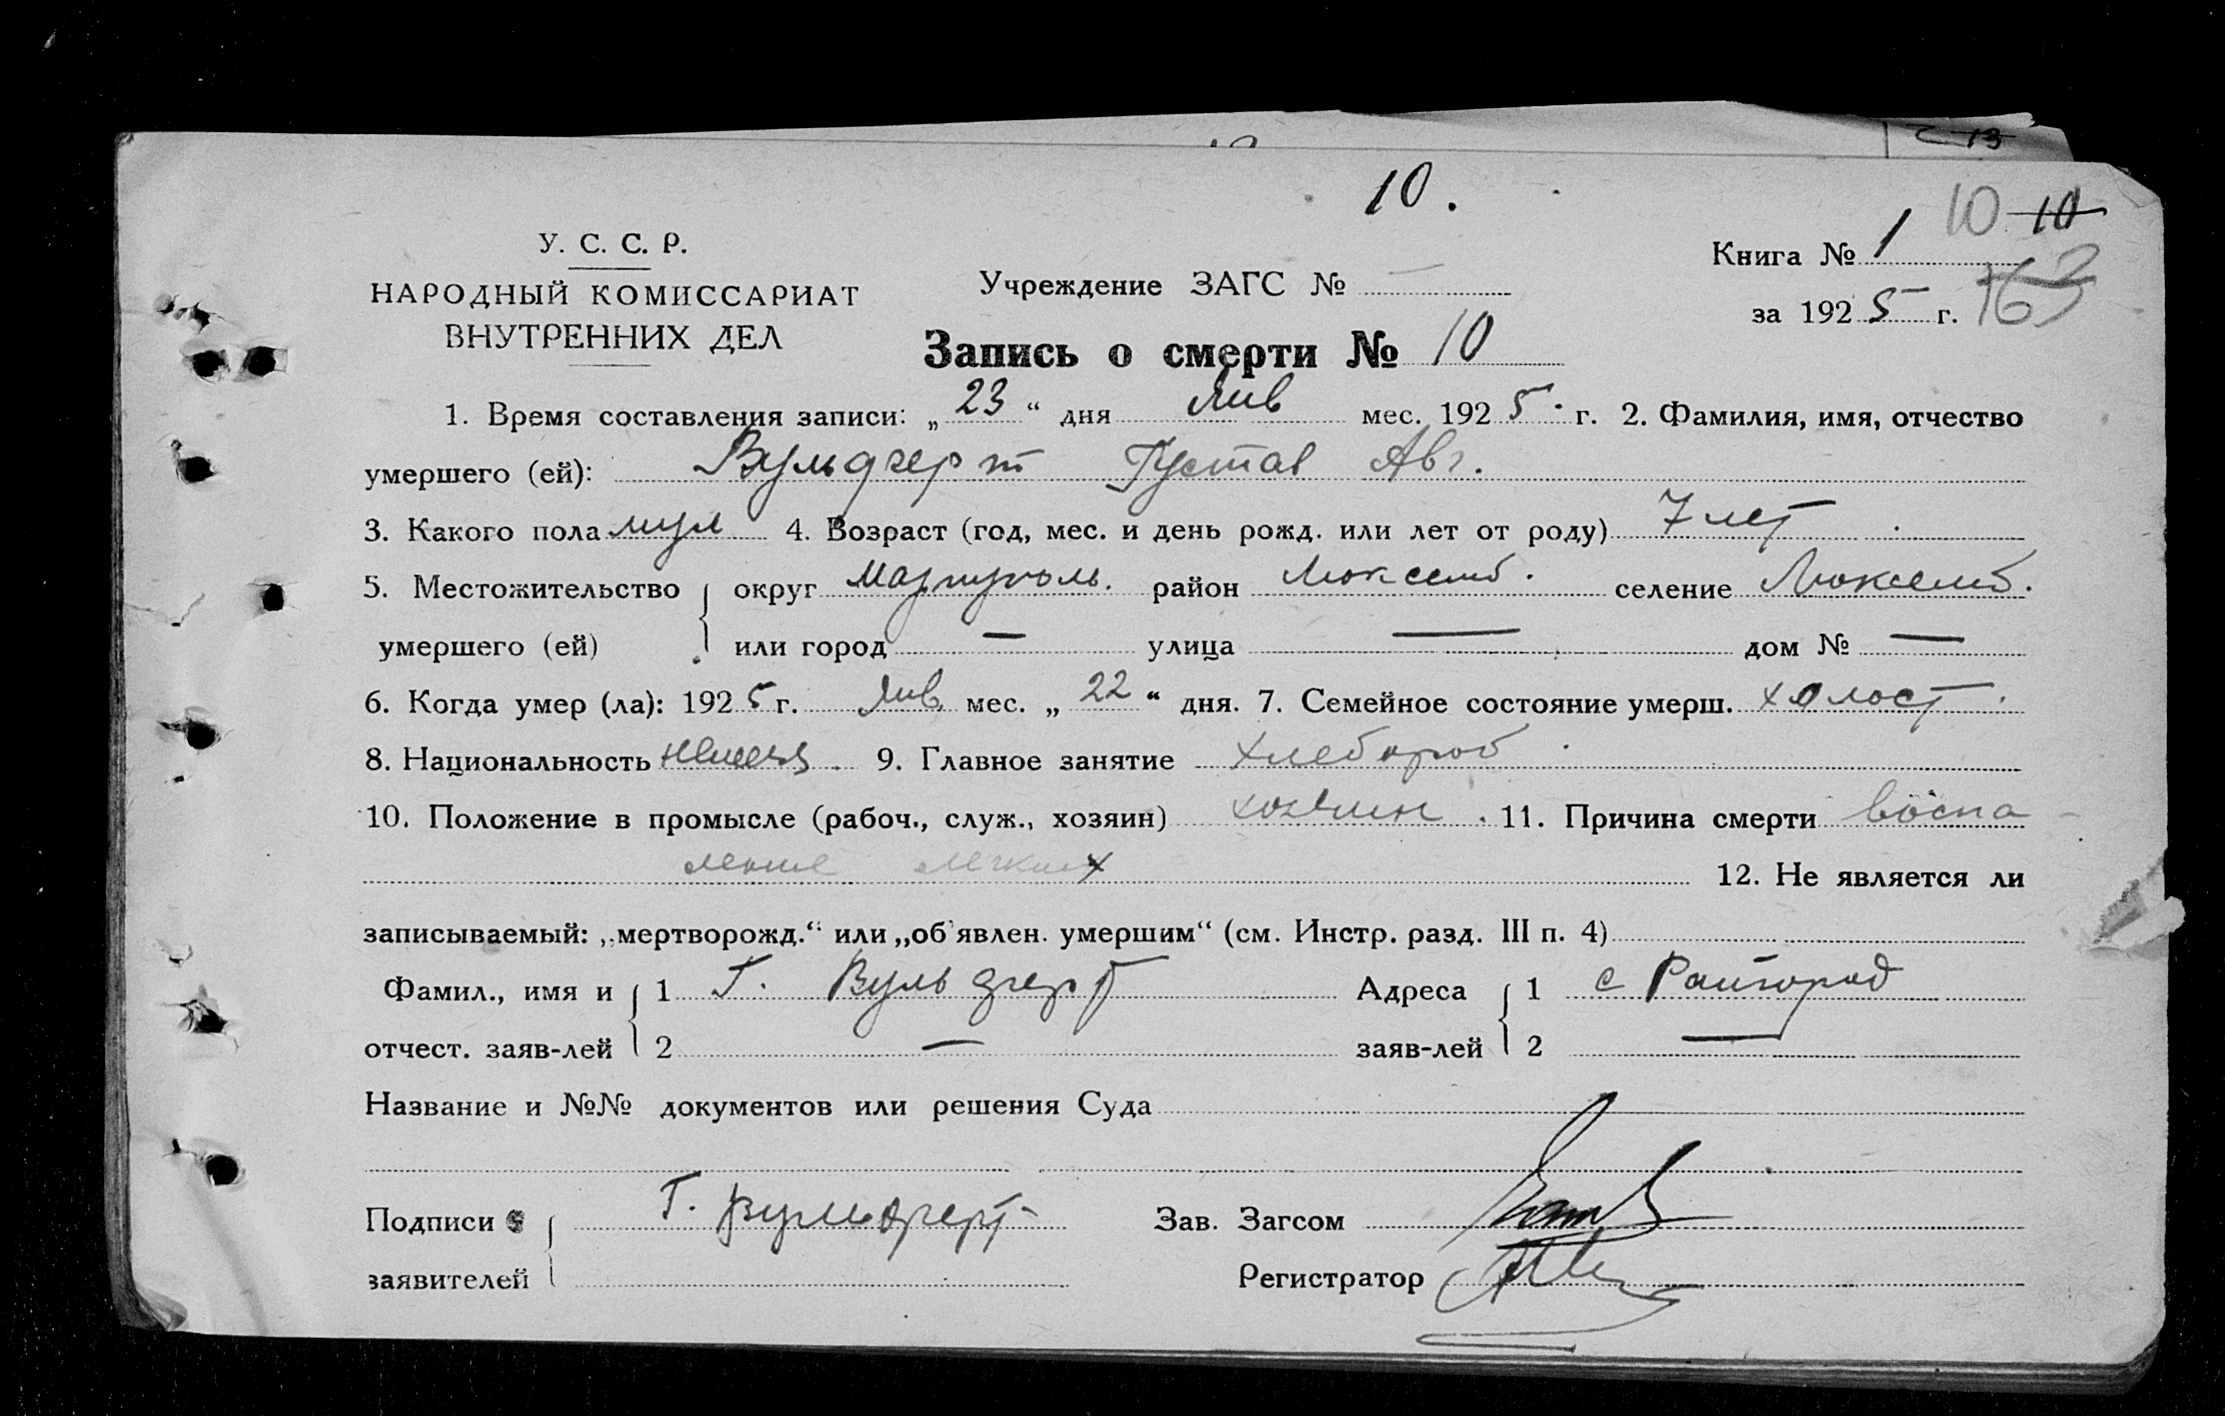 10.
У. С. С. Р.
НАРОДНЫЙ КОМИССАРИАТ
ВНУТРЕННИХ ДЕЛ
Учреждение ЗАГС № —
Книга № 1 10 10
за 1925 г.
Запись о смерти № 10
1. Время составления записи: „23“ дня Янв мес. 1925 г. 2. Фамилия, имя, отчество
умершего (ей): Вульферт Густав Авг.
3. Какого пола муж 4. Возраст (год, мес. и день рожд. или лет от роду) 7 лет
5. Местожительство округ Мариуполь. район Люксемб. селение Люксемб.
умершего (ей) или город — улица — дом № —
6. Когда умер (ла): 1925 г. Янв мес. „22“ дня. 7. Семейное состояние умерш. холост.
8. Национальность немец 9. Главное занятие хлебороб
10. Положение в промысле (рабоч., служ., хозяин) хозяин. 11. Причина смерти воспа-
ление легких 12. Не является ли
записываемый: „мертворожд.“ или „об'явлен. умершим“ (см. Инстр. разд. III п. 4)
Фамил., имя и 1 Г. Вульферт Адреса 1 с Райгород
отчест. заяв-лей 2 — заяв-лей 2 —
Название и №№ документов или решения Суда
Подписи Г. Вульферт Зав. Загсом
заявителей Регистратор